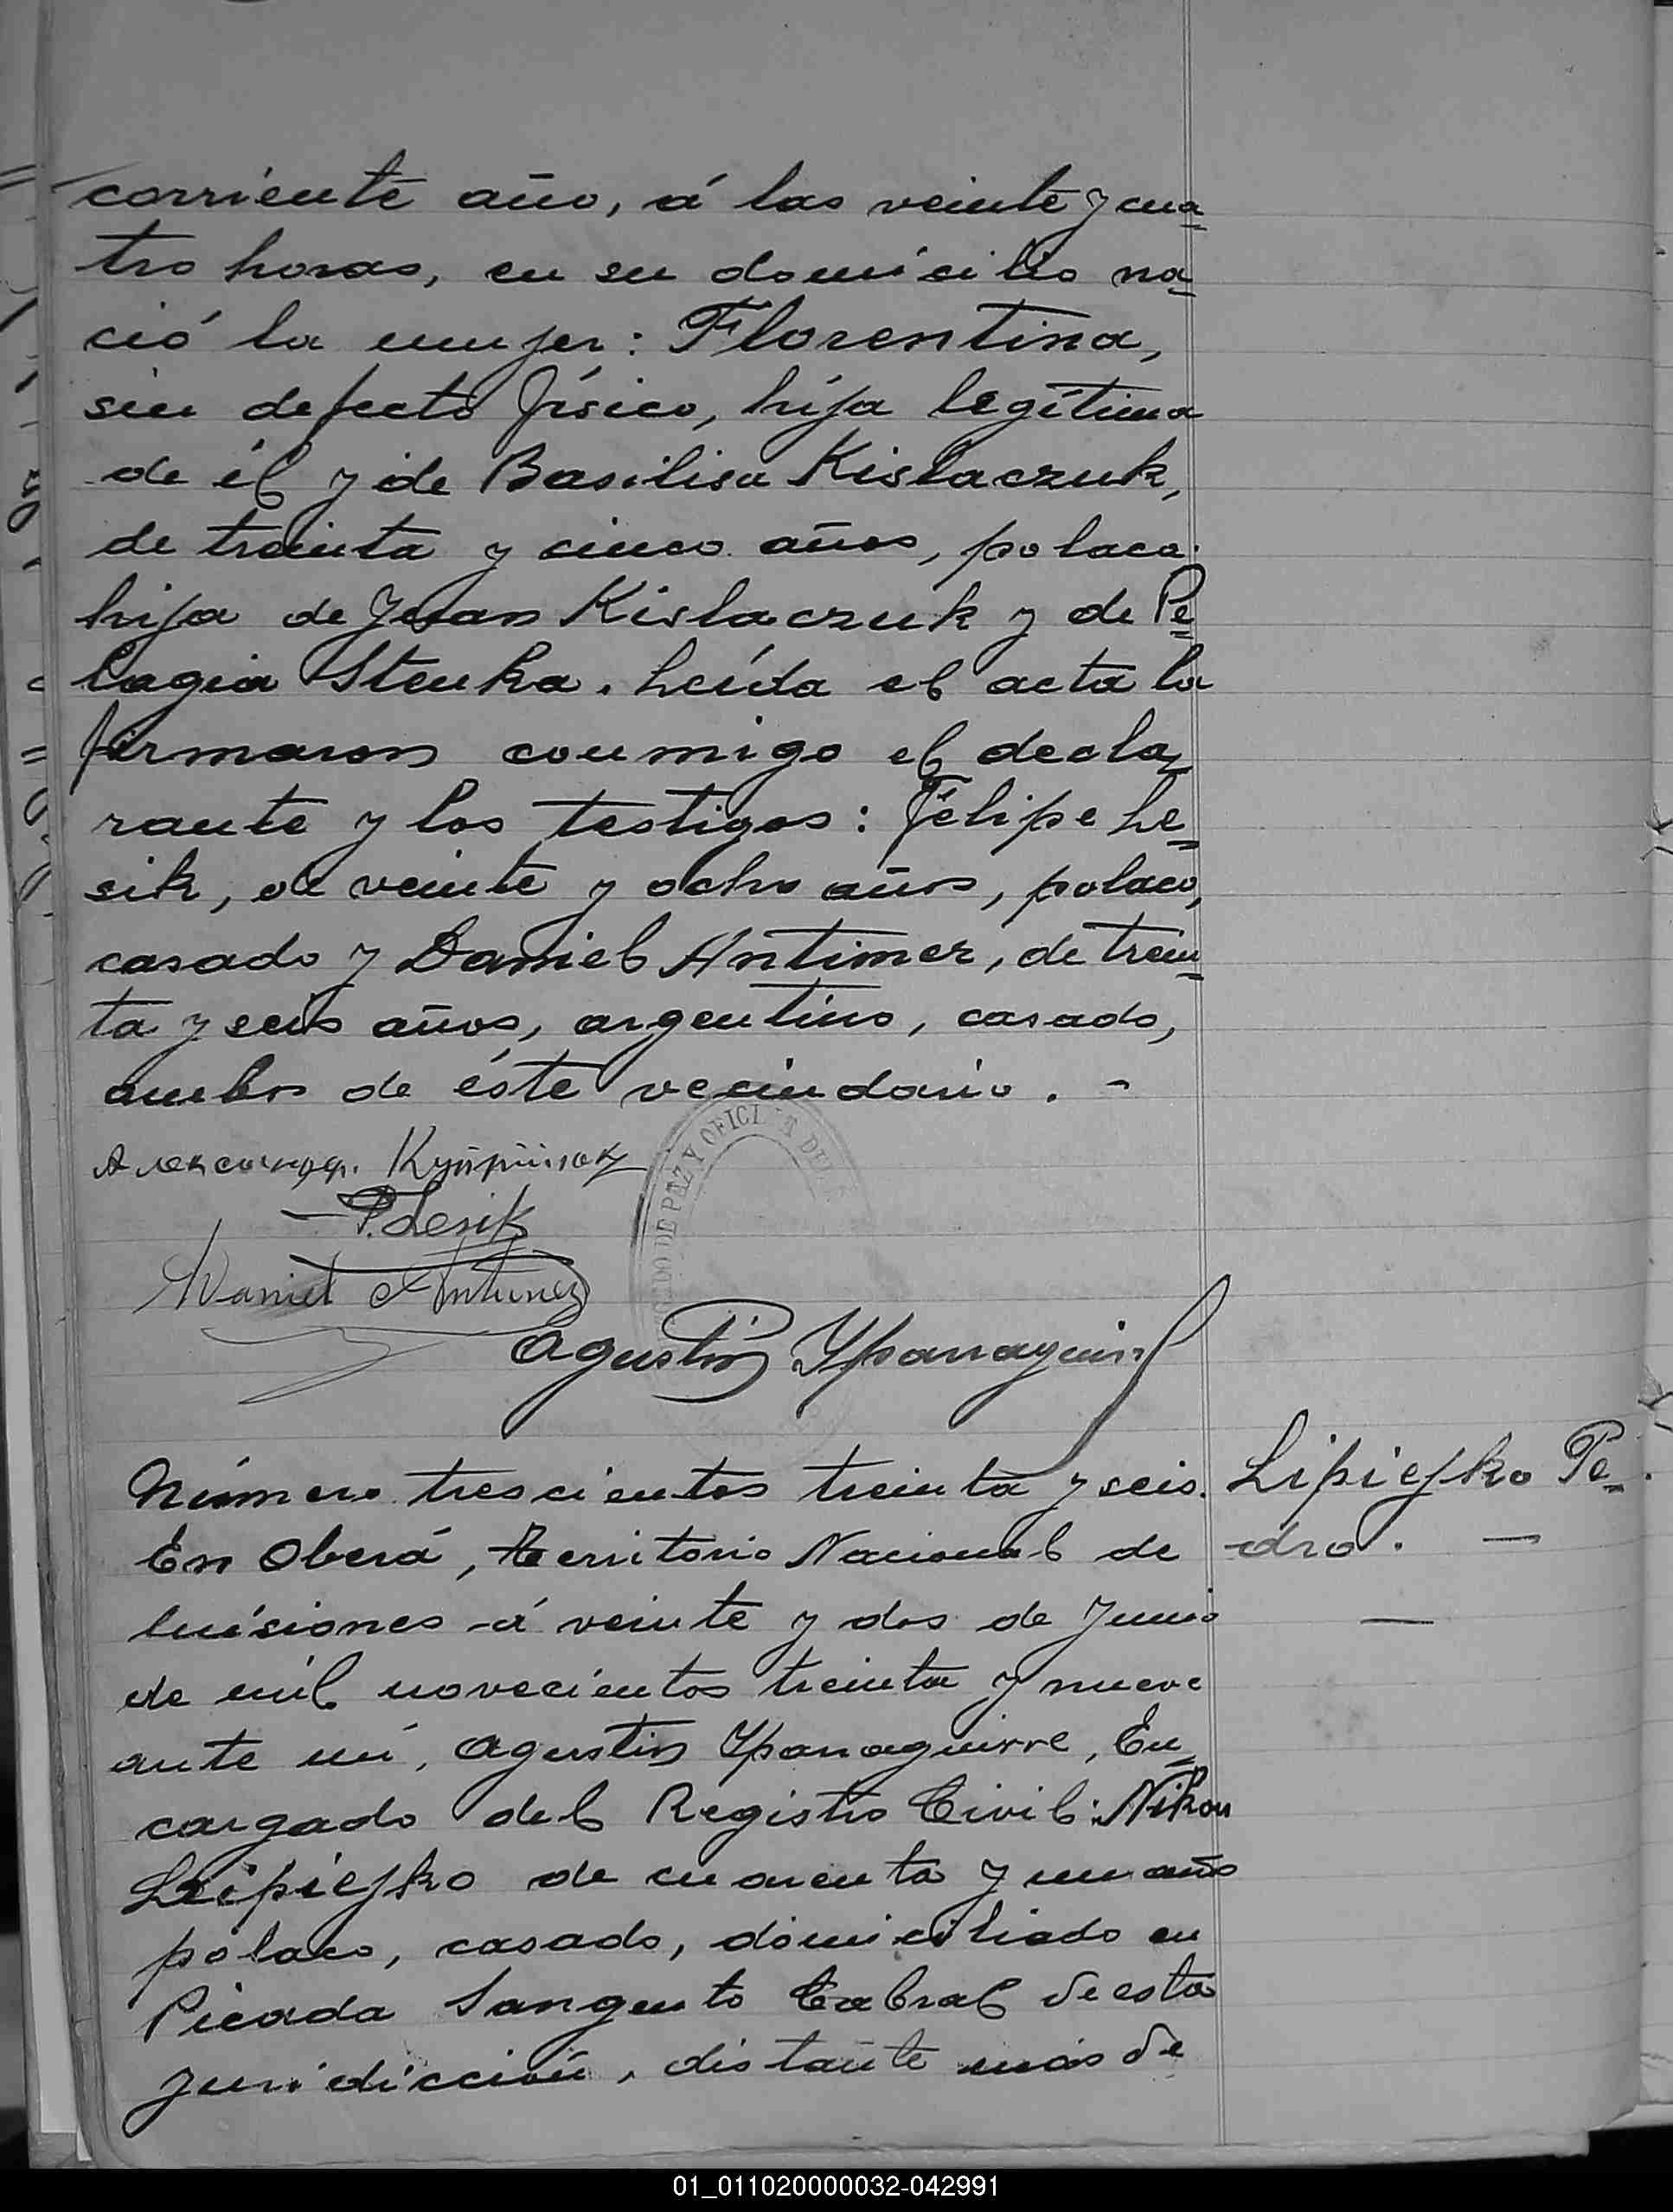 corriente año, á las veinte y cua=
tro horas, en su domicilio na=
ció la mujer: Florentina,
sin defecto físico, hija legítima
de él y de Basilisa Kislaczuk,
de treinta y cinco años, polaca.
hija de Juan Kislaczuk y de Pe=
lagia Steuka. Leída el acta la
firmaron conmigo el decla=
rante y los testigos: Felipe Le=
sik, de veinte y ocho años, polaco,
casado y Daniel Antimez, de trein=
ta y seis años, argentino, casado,
ambos de éste vecindario. -
JUZGADO DE PAZ Y OFICINA DEL
P. Lesik
Daniel Antunez
Agustin Yparraguirre
Número trescientos treinta y seis. Lipiejko Pe=
En Oberá, territorio Nacional de dro. —
Misiones á veinte y dos de Junio —
de mil novecientos treinta y nueve
ante mí, Agustin Yparraguirre, En=
cargado del Registro Civil: Nikon
Lipiejko de cuarenta y un años
polaco, casado, domiciliado en
Picada Sargento Cabral de esta
juridicción, distante más de
01_011020000032-042991